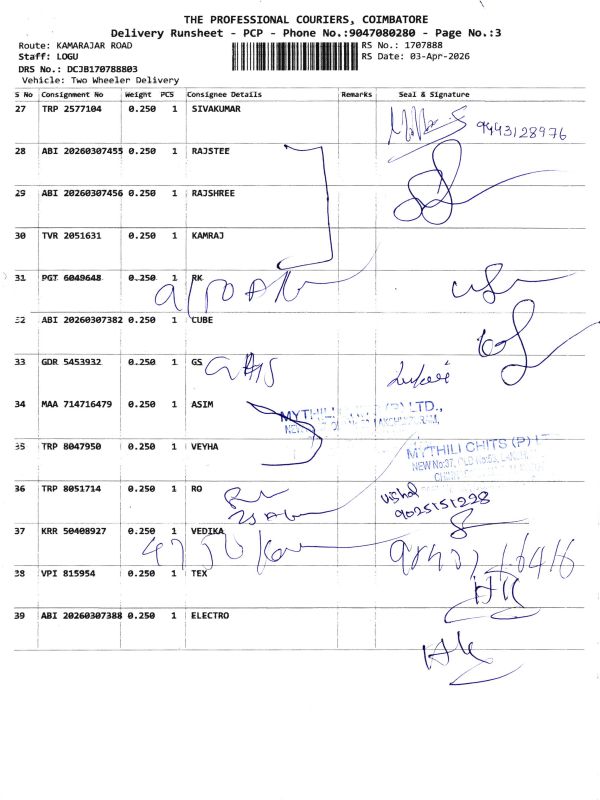 THE PROFESSIONAL COURIERS, COIMBATORE
Delivery Runsheet - PCP - Phone No.:9047080280 - Page No.:3
Route: KAMARAJAR ROAD RS No.: 1707888
Staff: LOGU RS Date: 03-Apr-2026
DRS No.: DCJB170788803
Vehicle: Two Wheeler Delivery
S No Consignment No Weight PCS Consignee Details Remarks Seal & Signature
27 TRP 2577104 0.250 1 SIVAKUMAR
9443128976
28 ABI 20260307455 0.250 1 RAJSTEE
29 ABI 20260307456 0.250 1 RAJSHREE
30 TVR 2051631 0.250 1 KAMRAJ
31 PGT 6049648 0.250 1 RK
32 ABI 20260307382 0.250 1 CUBE
33 GDR 5453932 0.250 1 GS
34 MAA 714716479 0.250 1 ASIM
MYTHILI (P) LTD.,
35 TRP 8047950 0.250 1 VEYHA
MYTHILI CHITS (P)
NEW No:37, OLD No:53,
36 TRP 8051714 0.250 1 RO
vishal
9025151228
37 KRR 50408927 0.250 1 VEDIKA
38 VPI 815954 0.250 1 TEX
39 ABI 20260307388 0.250 1 ELECTRO